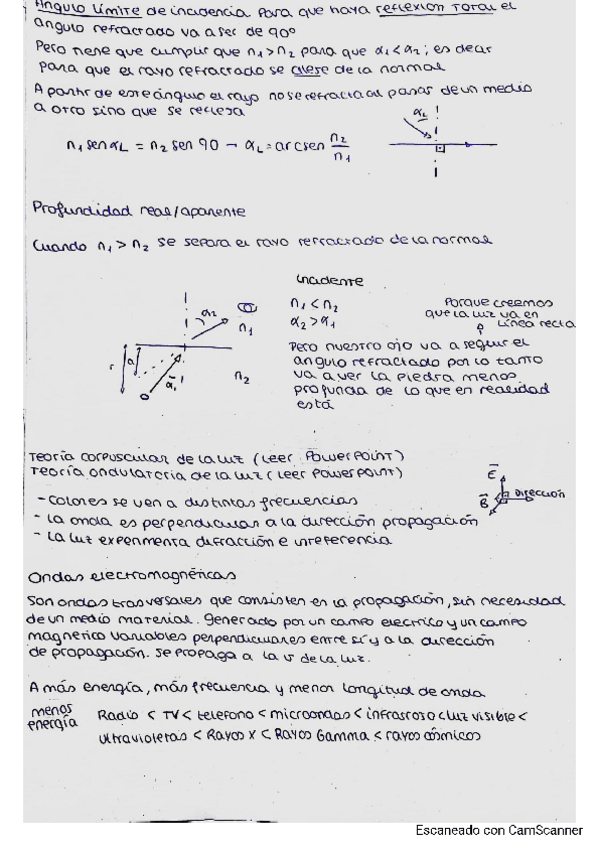 Angulo límite de incidencia para que haya reflexion total el
angulo refractado va a ser de 90º
Pero tiene que cumplir que n₁>n₂ para que α₁<α₂; es decir
para que el rayo refractado se aleje de la normal
A partir de este ángulo el rayo no se refracta al pasar de un medio
a otro sino que se refleja
n₁ sen αL = n₂ sen 90 → αL = arcsen n₂/n₁
αL
Profundidad real/aparente
Cuando n₁ > n₂ se separa el rayo refractado de la normal
Incidente
n₁ < n₂
α₂ > α₁
Porque creemos
que la luz va en
línea recta
Pero nuestro ojo va a seguir el
angulo refractado por lo tanto
va a ver la piedra menos
profunda de lo que en realidad
está
α₂
n₁
n₂
r
a
α₁
Teoría corpuscular de la luz (Leer PowerPoint)
Teoría ondulatoria de la luz (Leer PowerPoint)
- Colores se ven a distintas frecuencias
- La onda es perpendicular a la dirección propagación
- La luz experimenta difracción e inreferencia
E
B
Dirección
Ondas electromagnéticas
Son ondas trasversales que consisten en la propagación, sin necesidad
de un medio material. Generado por un campo electrico y un campo
magnetico variables perpendiculares entre sí y a la dirección
de propagación. Se propaga a la v de la luz.
A más energía, más frecuencia y menor longitud de onda
menos
energía
Radio < TV < telefono < microondas < infrasroso < luz visible <
ultravioletas < Rayos X < Rayos Gamma < rayos cósmicos
Escaneado con CamScanner